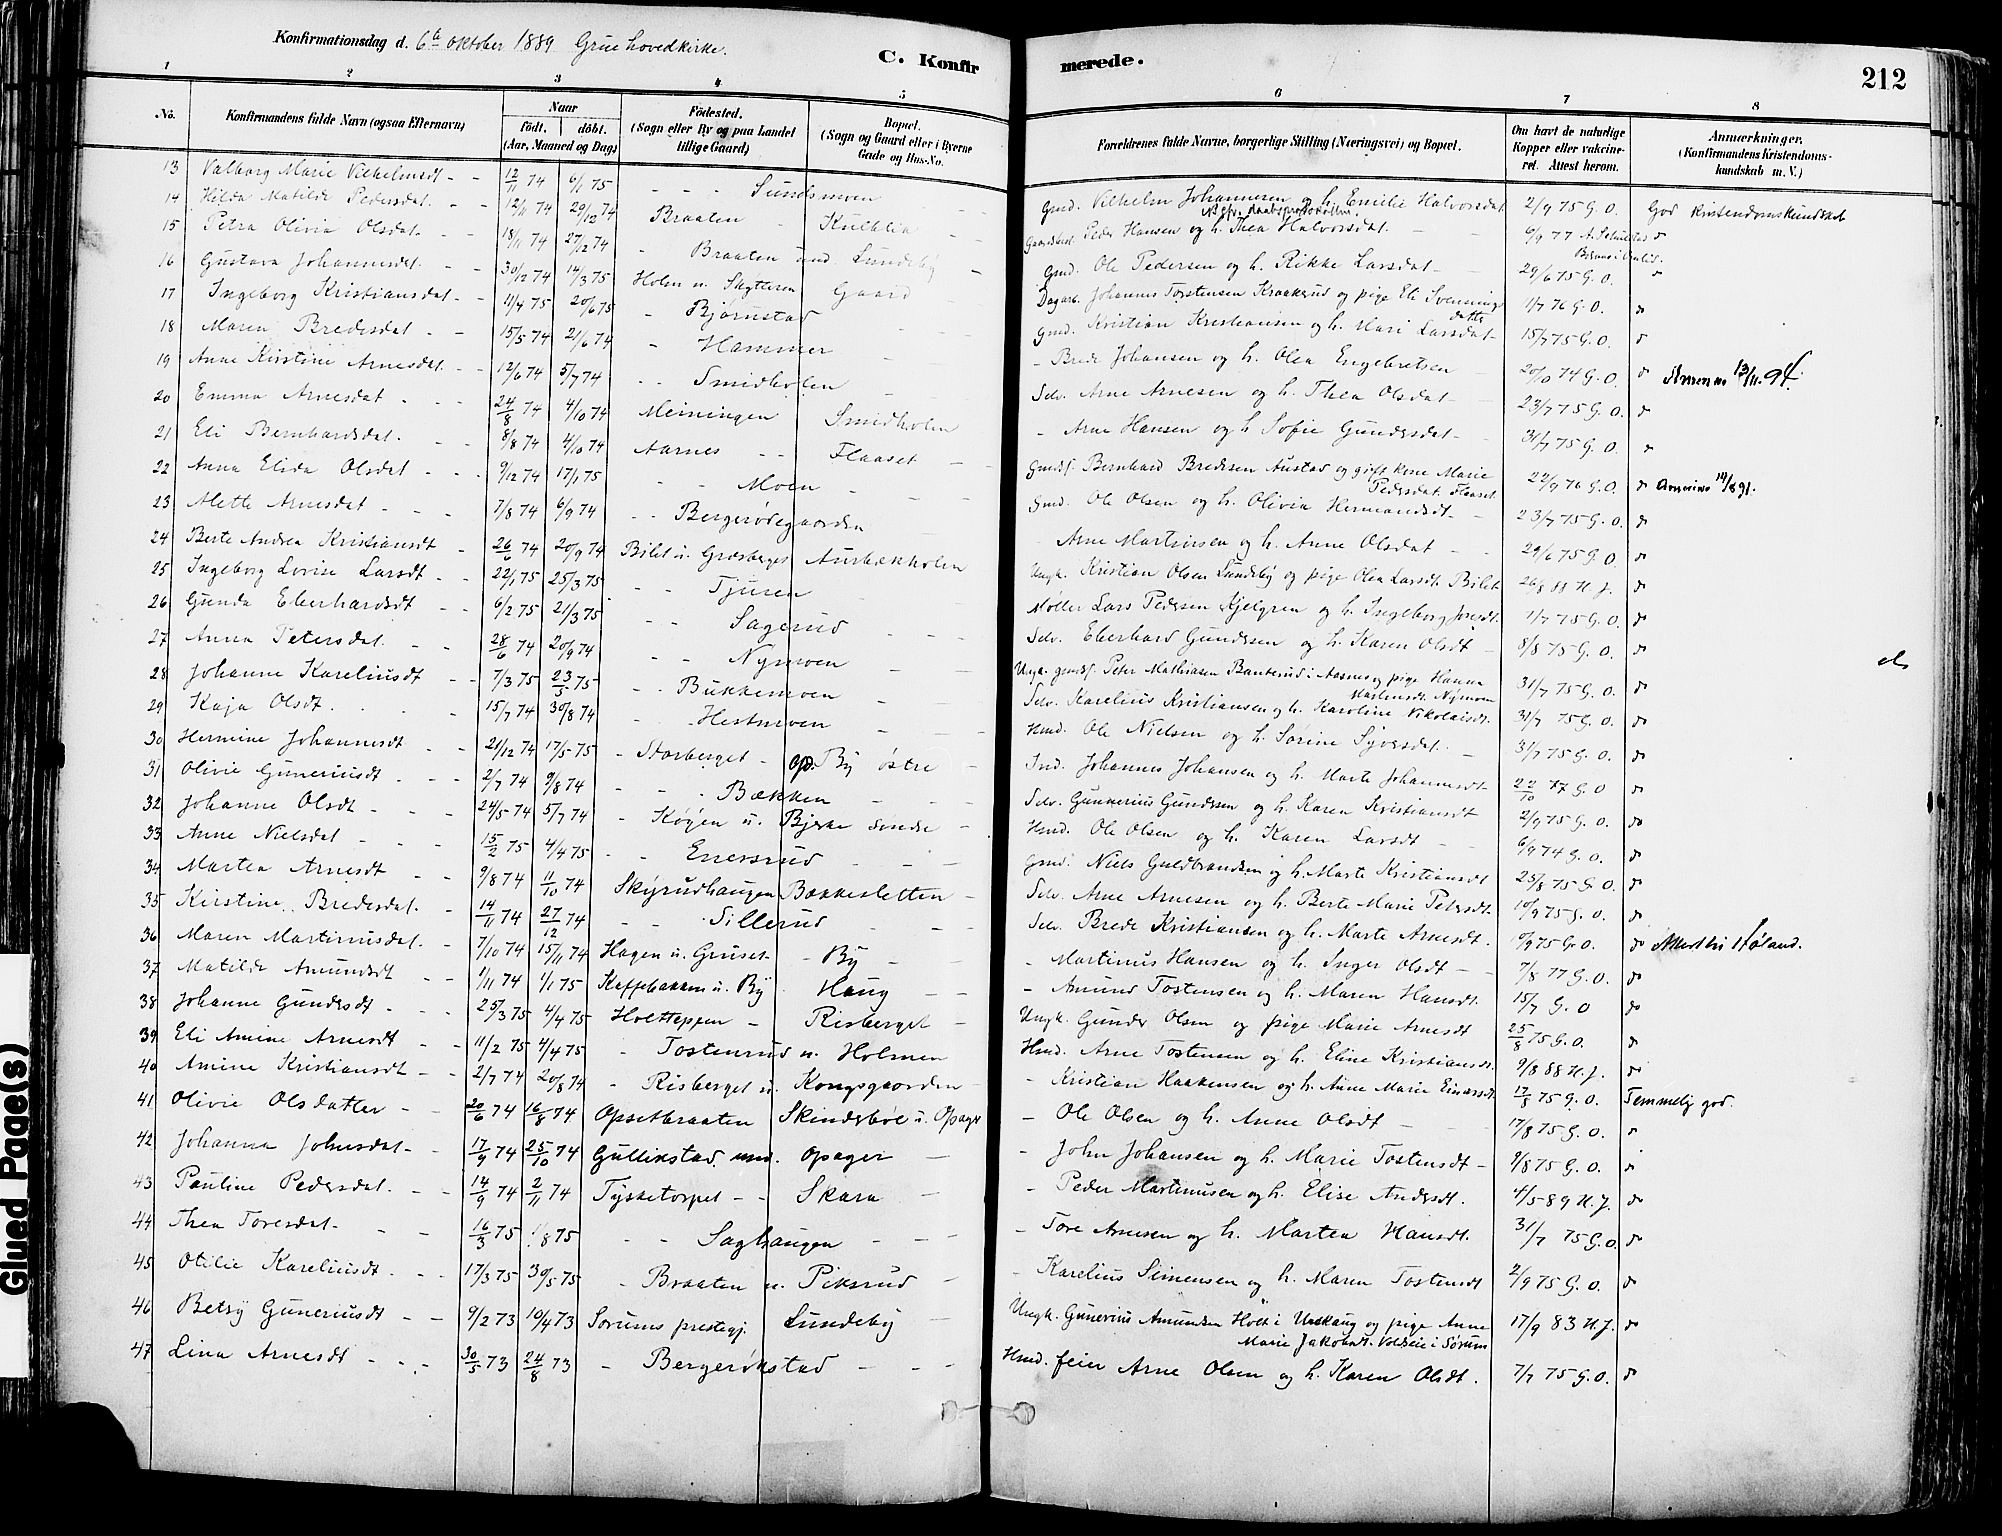 Konfirmationsdag d. 6te oktober 1889 Grue hovedkirke.
C. Konfirmerede.
212
1 2 3 4 5 6 7 8
No. Konfirmandens fulde Navn (ogsaa Efternavn) Naar født. døbt. (Aar, Maaned og Dag) Födested. (Sogn eller By og paa Landet tillige Gaard) Bopæl. (Sogn og Gaard eller i Byerne Gade og Hus-No. Forældrenes fulde Navne, borgerlige Stilling (Næringsvei) og Bopæl. Om havt de naturlige Kopper eller vakcineret. Attest herom. Anmærkninger. (Konfirmandens Kristendomskundskab m. V.)
13 Valborg Marie Vilhelmsdt 12/11 74 6/1 75 Sundsmoen Gmd. Vilhelm Johannesen og h. Emilie Halvorsdat 2/9 75 G.O. God kristendomskundskab
14 Hilda Matilde Pedersdat. 12/11 74 29/12 74 Braaten Kulblia Gaardbest. Peder Hansen og h. Thea Halvorsdat. 6/9 77
15 Petra Olivia Olsdat. 18/11 74 27/12 74 Braaten und. Lundeby Gmd. Ole Pedersen og h. Rikke Larsdat 29/6 75 G.O.
16 Gustava Johannesdat. 30/12 74 14/3 75 Holen u. Gaard Dagarb. Johannes Torstensen Kraakerud og pige Eli Svenningsdatter 1/7 76 G.O.
17 Ingeborg Kristiansdat 11/4 75 20/6 75 Bjørnstad Gmd. Kristian Kristiansen og h. Mari Larsdat 15/7 75 G.O.
18 Maren Bredesdat 15/5 74 21/6 74 Hammer Brede Johansen og h. Olea Engebretsen 20/10 74 G.O.
19 Anne Kirstine Arnesdat. 12/6 74 5/7 74 Smidholen Selv. Arne Arnesen og h. Thea Olsdat 23/7 75 G.O.
20 Emma Arnesdat 24/8 74 4/10 74 Meiningen Smidholen Arne Hansen og h Sofie Gundersdat 31/7 75 G.O.
21 Eli Bernhardsdat. 8/8 74 4/10 74 Aarnes Flaaset Gmdsf. Bernhard Bredesen Austad og gift kone Marie Pedersdat. Flaaset 22/9 76 G.O.
22 Anna Elida Olsdat 9/12 74 17/1 75 Moen Gmd. Ole Olsen og h. Olivia Hermansdt 23/7 75 G.O.
23 Mette Arnesdat 7/8 74 6/9 74 Bergerødegaarden Arne Martinsen og h. Anne Olsdat 29/6 75 G.O.
24 Berte Andrea Kristiansdt 26/6 74 20/9 74 Bilet u. Grasberget Aurbækholen Ungk. Kristian Olsen Lundeby og pige Olea Larsdt. Bilet 26/8 88 H.J.
25 Ingeborg Lovise Larsdt 22/1 75 25/3 75 Tjuren Møller Lars Pedersen Kjelgren og h. Ingeborg 1/7 75 G.O.
26 Gunda Eberhardsdt 6/2 75 21/3 75 Sagerud Selv. Eberhard Gundersen og h. Karen Olsdt 8/8 75 G.O.
27 Anna Petersdat. 28/6 74 20/9 74 Nymoen Ungk. gmdsf. Peter Mathisen Banterud i Aasnes og pige Hanna Nymoen 31/7 75 G.O.
28 Johanne Kareliusdt 7/3 75 23/5 75 Bukkemoen Selv. Karelius Kristiansen og h. Karoline Nikolaisdt. 31/7 75 G.O.
29 Kaja Olsdt. 15/7 74 30/8 74 Hestmoen Hmd. Ole Nielsen og h. Sørine Syversdat. 31/7 75 G.O.
30 Hermine Johannesdt 21/12 74 17/5 75 Storberget op. By østre Ind. Johannes Johansen og h. Marte Johannesdt 22/10 77 G.O
31 Olivie Guneriusdt 2/7 74 9/8 74 Bækken Selv. Gunnerius Gundersen og h. Karen Kristiansdt 2/9 75 G.O.
32 Johanne Olsdt 24/5 74 5/7 74 Køyen u. Bjerke søndre Hmd. Ole Olsen og h. Karen Larsdt 6/9 74 G.O.
33 Anne Nielsdat 15/2 75 4/4 75 Enersrud Gmd. Niels Guldbrandsen og h. Marte Kristiansdt 25/8 75 G.O.
34 Martea Arnesdt 9/8 74 11/10 74 Skyrudhaugen Bækkesletten Selv. Arne Arnesen og h. Berte Marie Pedersdt. 10/9 75 G.O.
35 Kirstine Bredesdat. 14/11 74 27/12 74 Sillerud Selv. Brede Kristiansen og h. Marte Arnesdt. 75 G.O.
36 Maren Martinusdat. 7/10 74 15/11 74 Hagen u. Gruset By Martinus Hansen og h. Inger Olsdt 7/8 77 G.O.
37 Matilde Amundsdt 1/11 74 1/1 75 Kaffebakken u. By Haug Amund Tostensen og h. Maren Hansdt. 15/7 G.O
38 Johanne Gundersdt 25/3 75 4/4 75 Holteppen Risberget Ungk. Gunder Olsen og pige Marie Arnesdt 25/8 75 G.O.
39 Eli Amine Arnesdt 11/2 75 4/4 75 Tostenrud u. Holmen Hmd. Arne Tostensen og h. Eline Kristiansdt. 9/8 88 H.J.
40 Amine Kristiansdt 2/7 74 20/8 74 Risberget u. Kongsgaarden Kristian Haakensen og h. Anne Marie Einarsdt 12/8 75 G.O. Temmelig god.
41 Olivie Olsdatter 20/6 74 16/8 74 Opsetbraaten Skinderbøl u. Opager Ole Olsen og h. Anne Olsdt 17/8 75 G.O.
42 Johanna Johnsdat. 17/9 74 25/10 74 Gullikstad und. Opager John Johansen og h. Marie Tostensdt 9/8 75 G.O.
43 Pauline Pedersdat. 14/9 74 2/11 74 Tysketorpet Skara Peder Martinusen og h. Elise Andersdt. 4/5 89 H.J.
44 Thea Toresdat. 16/3 75 1/8 75 Saghaugen Tore Arnesen og h. Martea Hansdt. 31/7 75 G.O.
45 Otilie Kareliusdt. 17/3 75 30/5 75 Braaten u. Piksrud Karelius Simensen og h. Maren Tostensdt 2/9 75 G.O.
46 Betsy Guneriusdt 9/2 73 10/4 73 Sørums prestegj. Lundeby Ungk. Gunerius Amundsen Holt i Urskaug og pige Anne Marie Jakobsdt. i Sørum 17/9 83 H.J.
47 Lina Arnesdt 30/5 73 24/8 73 Bergerøkstad Hmd. feier Arne Olsen og h. Karen Olsdt. 7/7 75 G.O.
Glued Page(s)